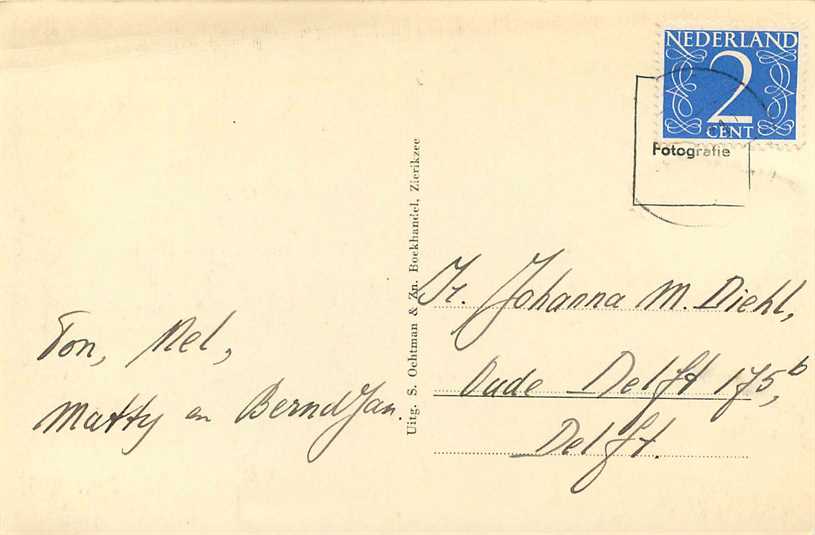 NEDERLAND
2
CENT
Fotografie
Uitg. S. Ochtman & Zn. Boekhandel, Zierikzee
Ton, Nel,
Matty en BerndJan.
Jr. Johanna M. Diehl,
Oude Delft 175,b
Delft.